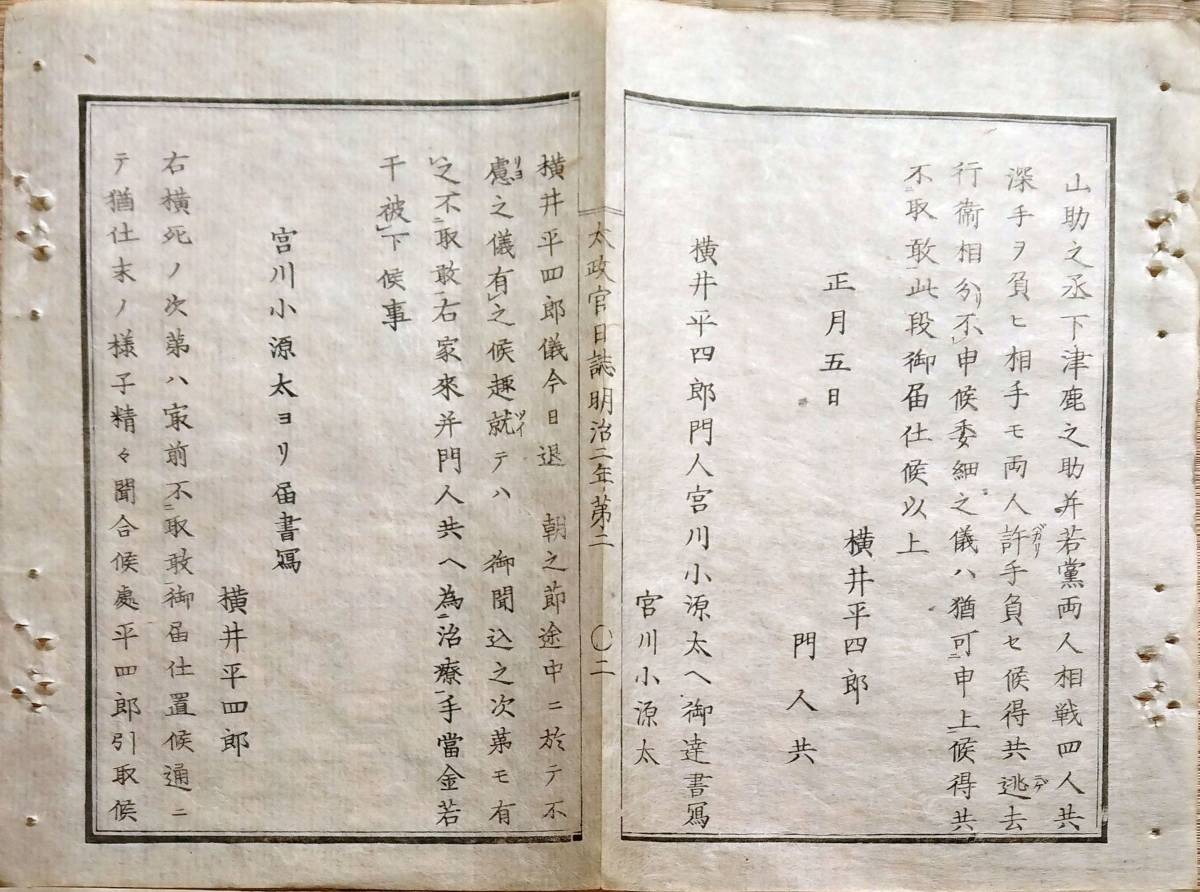 山助之丞下津鹿之助并若黨両人相戦四人共
深手ヲ負ヒ相手モ両人許手負セ候得共逃去
バカリ
ニゲ
行衛相分リ不申候委細之儀ハ猶可申上候得共
不取敢此段御届仕候以上
正月五日
横井平四郎
門人共
横井平四郎門人宮川小源太ヘ御達書寫
宮川小源太
太政官日誌明治二年第二
〇二
横井平四郎儀今日退 朝之節途中ニ於テ不
慮之儀有之候趣就テハ 御聞込之次第モ有
リヨ
ツイ
之不取敢右家來并門人共ヘ為治療手當金若
干被下候事
宮川小源太ヨリ届書寫
横井平四郎
右横死ノ次第ハ㝡前不取敢御届仕置候通ニ
テ猶仕末ノ様子精々聞合候處平四郎引取候